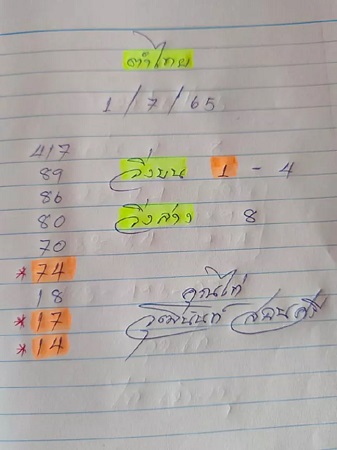 คำไทย
1/7/65
417
89 วิ่งบน 1 - 4
86
80 วิ่งล่าง 8
70
*74
18
*17
*14